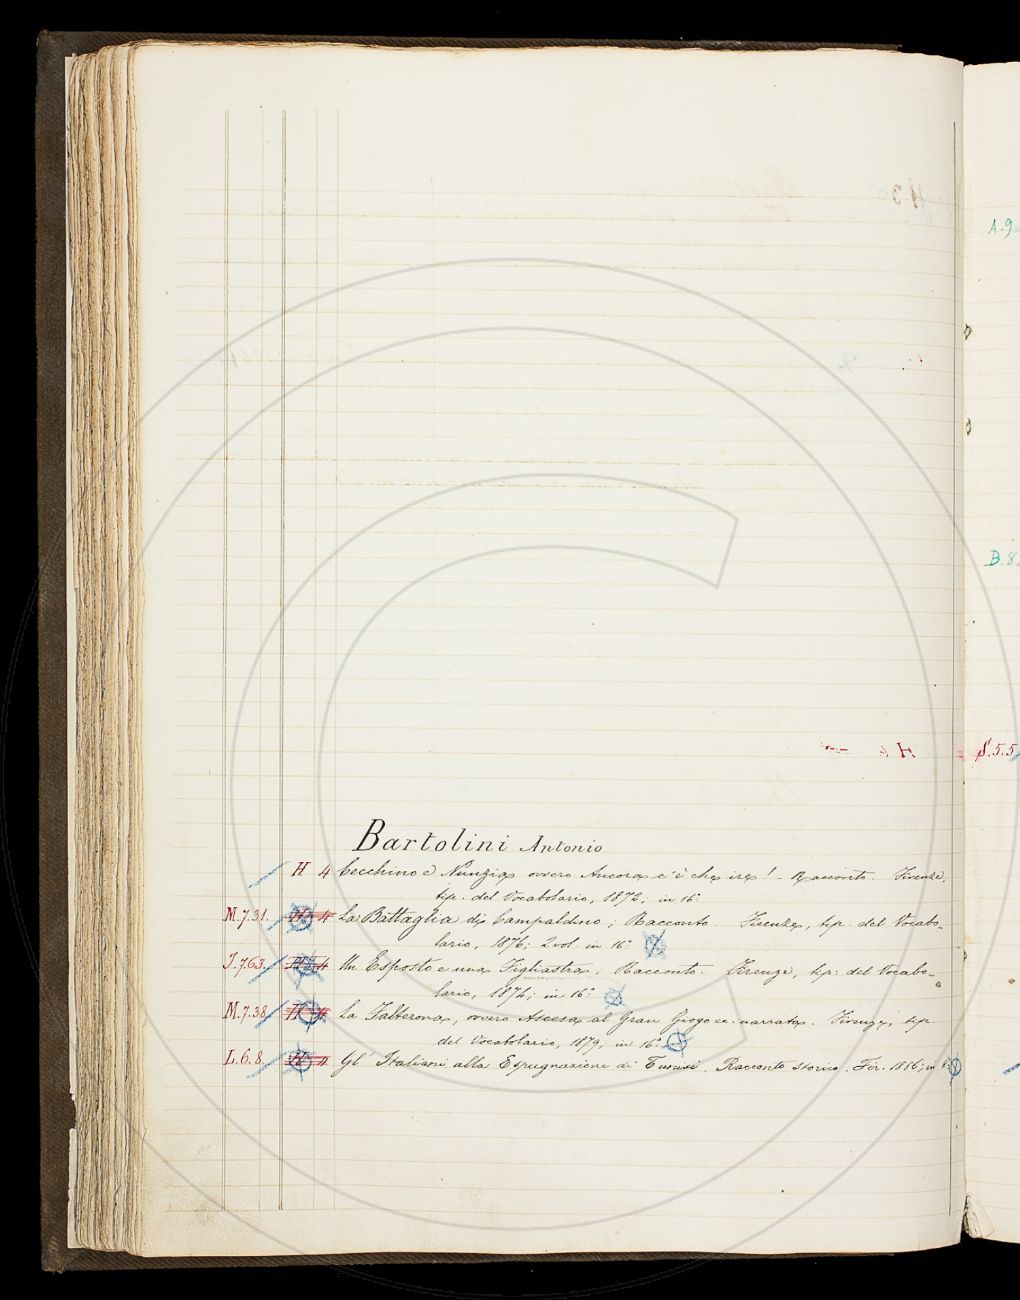 A-9
B.8
S.5.5
Bartolini Antonio
H 4 Cecchino e Nunzia ovvero Ancora c'è che ire! - Racconto. Firenze,
tip. del Vocabolario, 1872; in 16°
M.7.31. H 4 La Battaglia di Campaldino; Racconto. Firenze, tip. del Vocabo-
lario, 1876; 2 vol. in 16°
J.7.63. H 4 Un Esposto e una Figliastra; Racconto. Firenze, tip: del Vocabo-
lario, 1874; in 16°
M.7.38 H 4 La Falterona, ovvero Ascesa al Gran Giogo ec. narrata. Firenze, tip.
del Vocabolario, 1879; in 16°
L.6.8. H 4 Gl' Italiani alla Espugnazione di Racconto storico. Fir. 1856; in